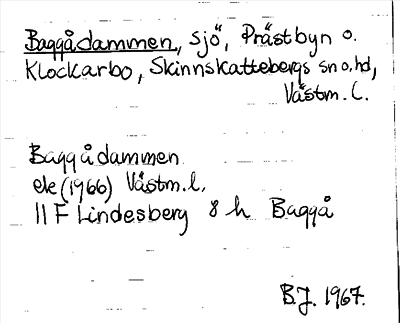 Baggådammen, sjö, Prästbyn o.
Klockarbo, Skinnskattebergs sn o. hd,
Västm. l.
Baggådammen
ek (1966) Västm. l.
11 F Lindesberg 8 h Baggå
B.J. 1967.